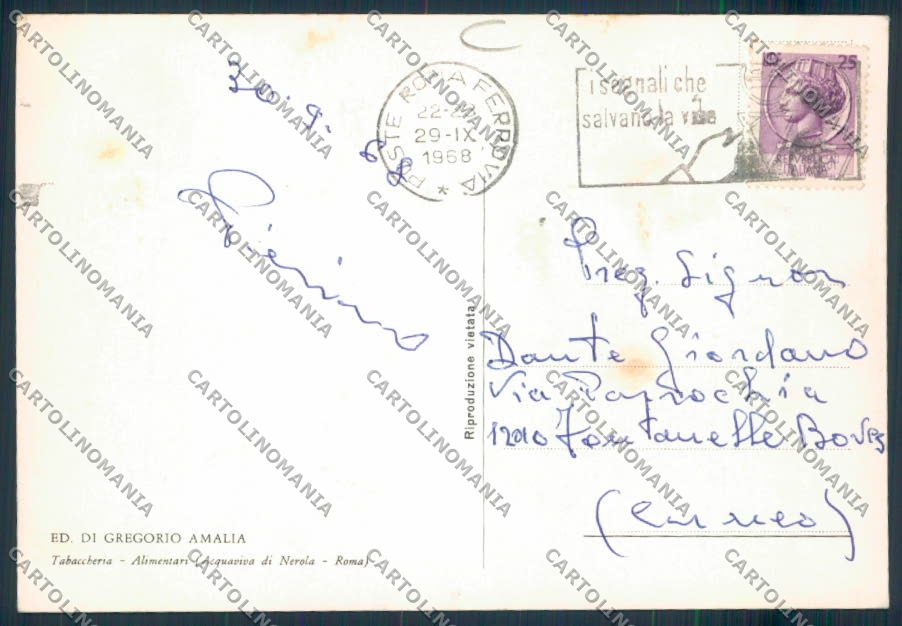 30.9.
68
Pierino
POSTE ROMA FERROVIA
22-2
29-IX
1968
i segnali che
salvano la vita
25
REPUBBLICA
ITALIANA
Preg. Signor
Dante Giordano
Via Parrochia
12010 Fontanelle Boves
(Cuneo)
Riproduzione vietata
ED. DI GREGORIO AMALIA
Tabaccheria - Alimentari (Acquaviva di Nerola - Roma)
CARTOLINOMANIA